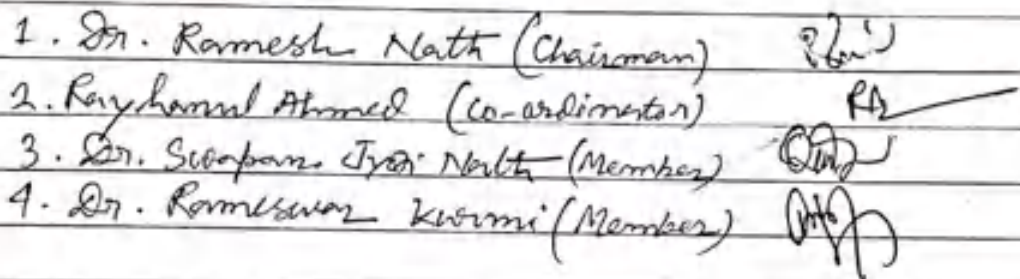 1. Dr. Ramesh Nath (Chairman)
2. Rayhanul Ahmed (Co-ordinator)
3. Dr. Swapan Jyoti Nath (Member)
4. Dr. Rameswar Kurmi (Member)